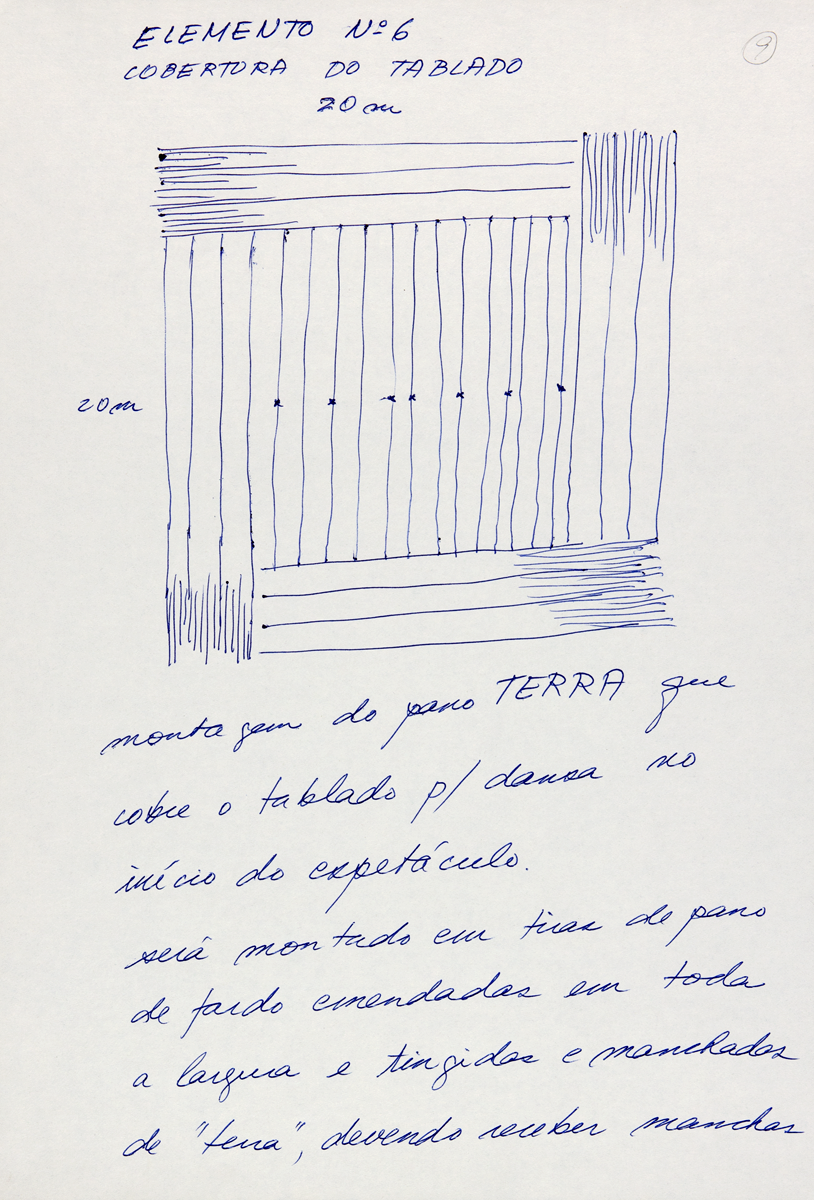 9
ELEMENTO Nº 6
COBERTURA DO TABLADO
20 m
20 m
montagem do pano TERRA que
cobre o tablado p/ dansa no
início do espetáculo.
será montado em tiras de pano
de fardo emendadas em toda
a largura e tingidas e manchadas
de "terra", devendo receber manchas